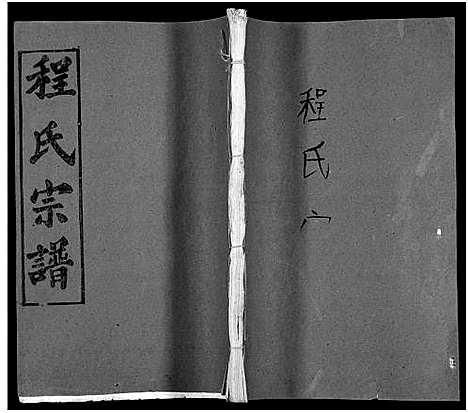 程氏宗譜
程氏宀